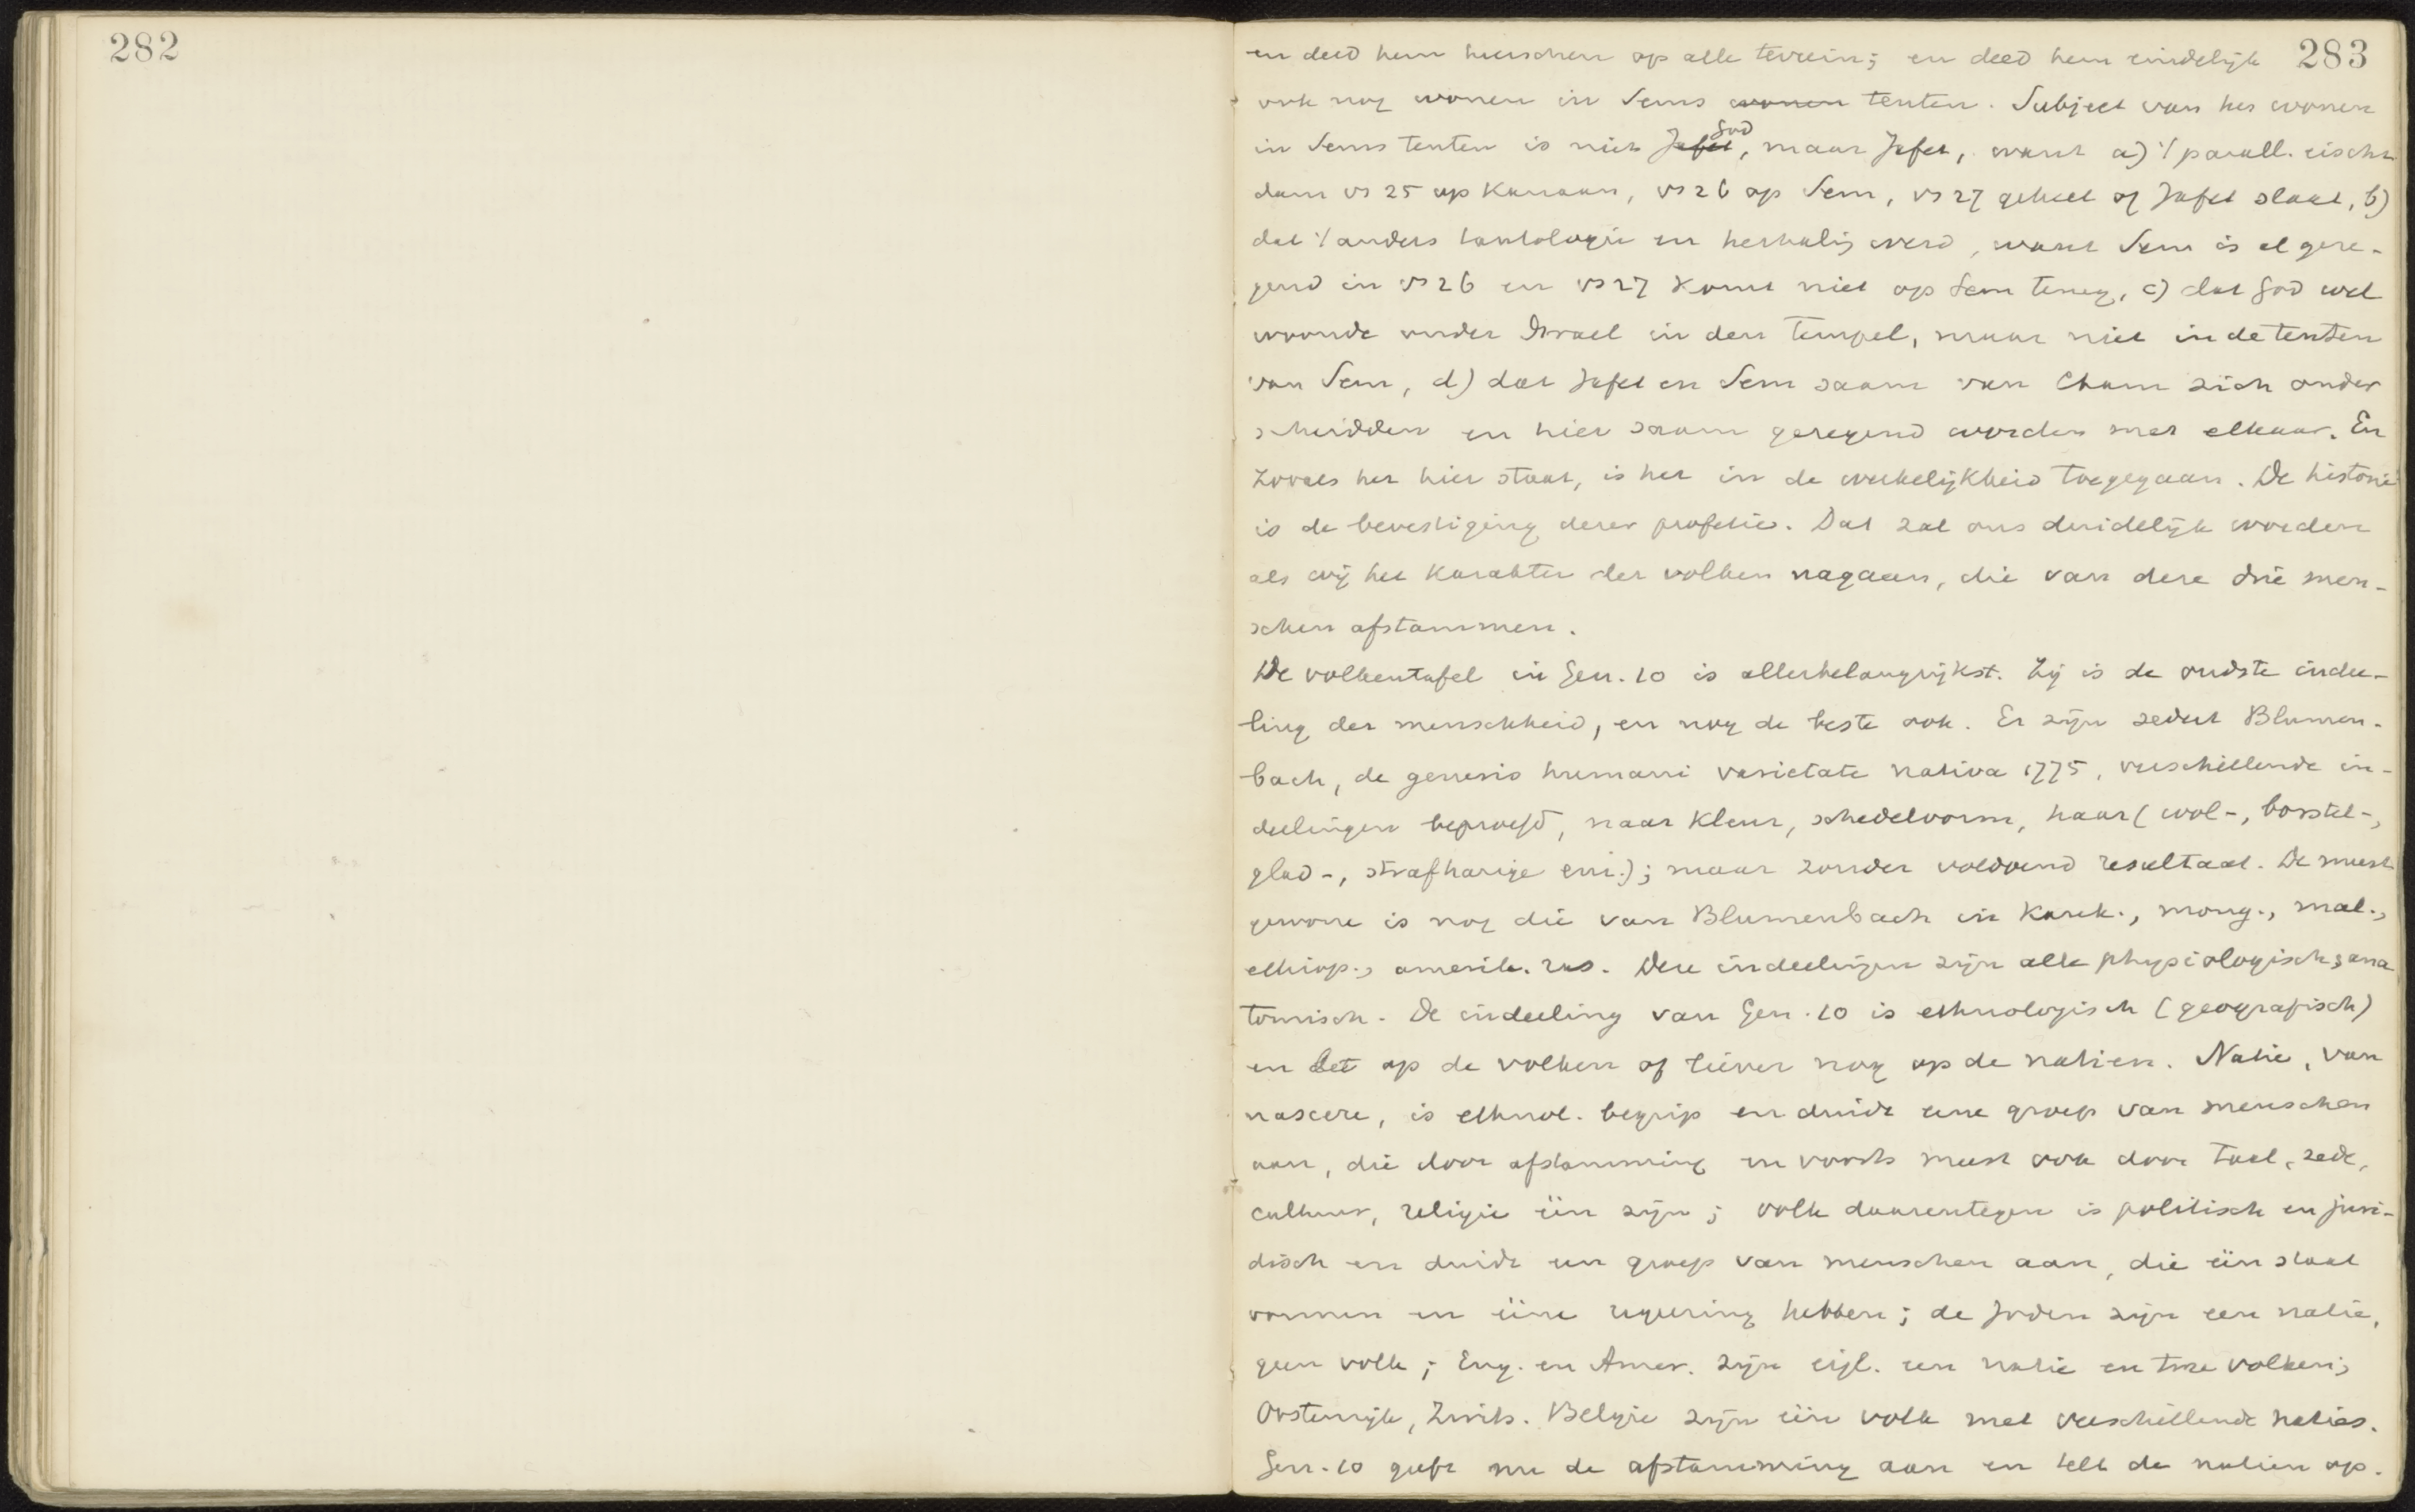 282
283
en deed hem heerschen op alle terrein; en deed hem eindelijk
ook nog wonen in Sems wonen tenten. Subject van het wonen
God
in Sems tenten is niet Jafet, maar Jafet, want a) % parall. eischt
dan vs 25 op Kanaan, vs 26 op Sem, vs 27 geheel op Jafet slaat, b)
dat % anders tautologie en herhalig werd, want Sem is al geze-
gend in vs 26 en vs 27 komt niet op Sem terug, c) dat God wel
woonde onder Israel in den tempel, maar niet in de tenten
van Sem, d) dat Jafet en Sem saam van Cham zich onder
scheidden en hier saam gezegend worden met elkaar. En
zooals het hier staat, is het in de werkelijkheid toegegaan. De historie
is de bevestiging dezer profetie. Dat zal ons duidelijk worden
als wij het karakter der volken nagaan, die van deze drie men-
schen afstammen.
De volkentafel in Gen. 10 is allerbelangrijkst. Zij is de oudste indee-
ling der menschheid, en nog de beste ook. Er zijn sedert Blumen-
bach, de generis humani varietate nativa 1775, verschillende in-
deelingen beproefd, naar kleur, schedelvorm, haar (wol-, borstel-,
glad-, strafharige enz.); maar zonder voldoend resultaat. De meest
gewone is nog die van Blumenbach in kauk., mong., mal.,
ethiop., amerik. ras. Deze indeelingen zijn alle physiologisch, ana
tomisch. De indeeling van Gen. 10 is ethnologisch (geografisch)
en let op de volken of liever nog op de natien. Natie, van
nascere, is ethnol. begrip en duidt eene groep van menschen
aan, die door afstamming en voorts meest ook door taal, zede,
cultuur, religie één zijn; volk daarentegen is politisch en juri-
disch en duidt een groep van menschen aan, die één staat
vormen en ééne regeering hebben; de Joden zijn een natie,
geen volk; Eng. en Amer. zijn eigl. een natie en twee volken;
Oostenrijk, Zwits. Belgie zijn één volk met verschillende naties.
Gen. 10 geeft nu de afstamming aan en telt de natien op.